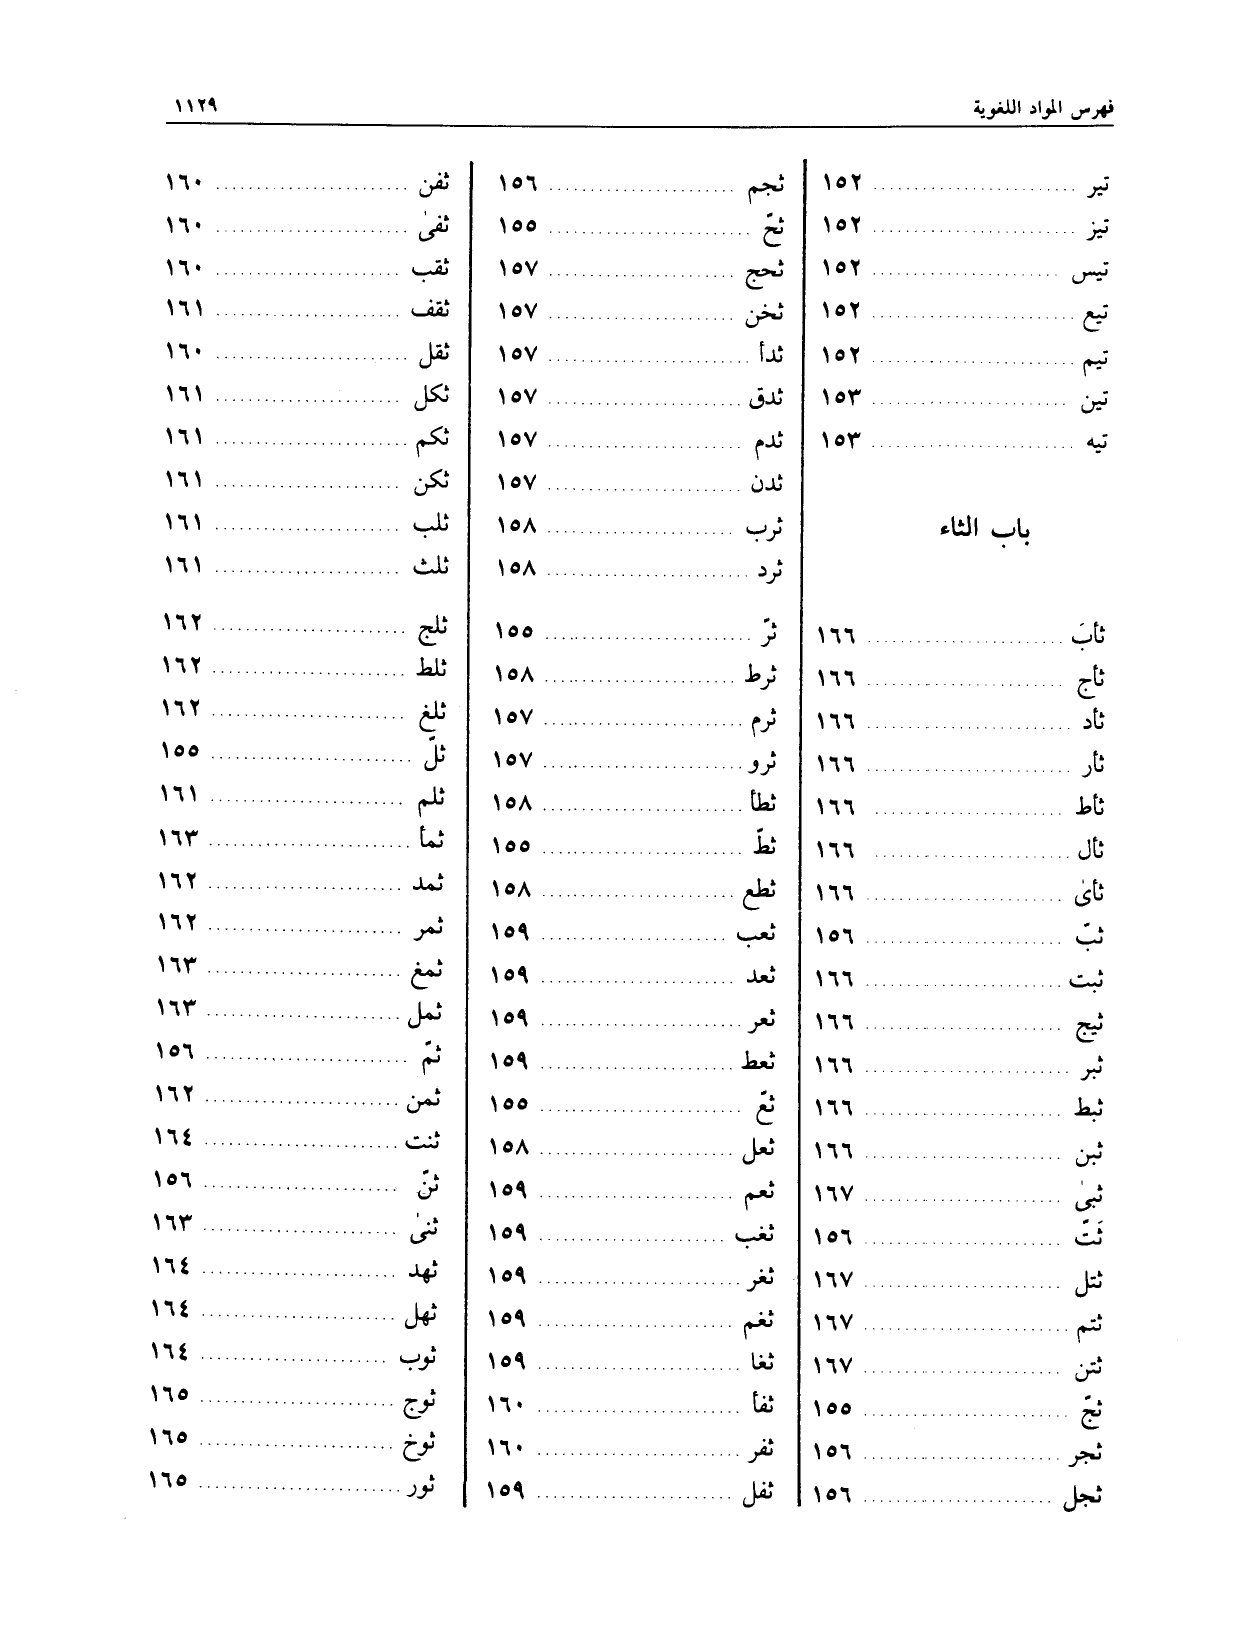 فهرس المواد اللغوية ١١٢٩
تير ١٥٢
تيز ١٥٢
تيس ١٥٢
تيع ١٥٢
تيم ١٥٢
تين ١٥٣
تيه ١٥٣
باب الثاء
ثأبَ ١٦٦
ثأج ١٦٦
ثأد ١٦٦
ثأر ١٦٦
ثأط ١٦٦
ثأل ١٦٦
ثأىٰ ١٦٦
ثبّ ١٥٦
ثبت ١٦٦
ثبج ١٦٦
ثبر ١٦٦
ثبط ١٦٦
ثبن ١٦٦
ثبىٰ ١٦٧
ثَتّ ١٥٦
ثتل ١٦٧
ثتم ١٦٧
ثتن ١٦٧
ثجّ ١٥٥
ثجر ١٥٦
ثجل ١٥٦
ثجم ١٥٦
ثحّ ١٥٥
ثحج ١٥٧
ثخن ١٥٧
ثدأ ١٥٧
ثدق ١٥٧
ثدم ١٥٧
ثدن ١٥٧
ثرب ١٥٨
ثرد ١٥٨
ثرّ ١٥٥
ثرط ١٥٨
ثرم ١٥٧
ثرو ١٥٧
ثطأ ١٥٨
ثطّ ١٥٥
ثطع ١٥٨
ثعب ١٥٩
ثعد ١٥٩
ثعر ١٥٩
ثعط ١٥٩
ثعّ ١٥٥
ثعل ١٥٨
ثعم ١٥٩
ثغب ١٥٩
ثغر ١٥٩
ثغم ١٥٩
ثغا ١٥٩
ثفأ ١٦٠
ثفر ١٦٠
ثفل ١٥٩
ثفن ١٦٠
ثفىٰ ١٦٠
ثقب ١٦٠
ثقف ١٦١
ثقل ١٦٠
ثكل ١٦١
ثكم ١٦١
ثكن ١٦١
ثلب ١٦١
ثلث ١٦١
ثلج ١٦٢
ثلط ١٦٢
ثلغ ١٦٢
ثلّ ١٥٥
ثلم ١٦١
ثمأ ١٦٣
ثمد ١٦٢
ثمر ١٦٢
ثمغ ١٦٣
ثمل ١٦٣
ثمّ ١٥٦
ثمن ١٦٢
ثنت ١٦٤
ثنّ ١٥٦
ثنىٰ ١٦٣
ثهد ١٦٤
ثهل ١٦٤
ثوب ١٦٤
ثوج ١٦٥
ثوخ ١٦٥
ثور ١٦٥